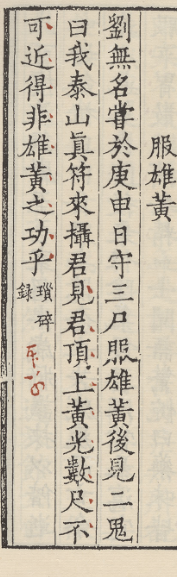 服雄黃
劉無名嘗於庚申日守三尸服雄黃後見二鬼
曰我泰山眞符來攝君見君頂上黃光數尺不
可近得非雄黃之功乎瑣碎錄